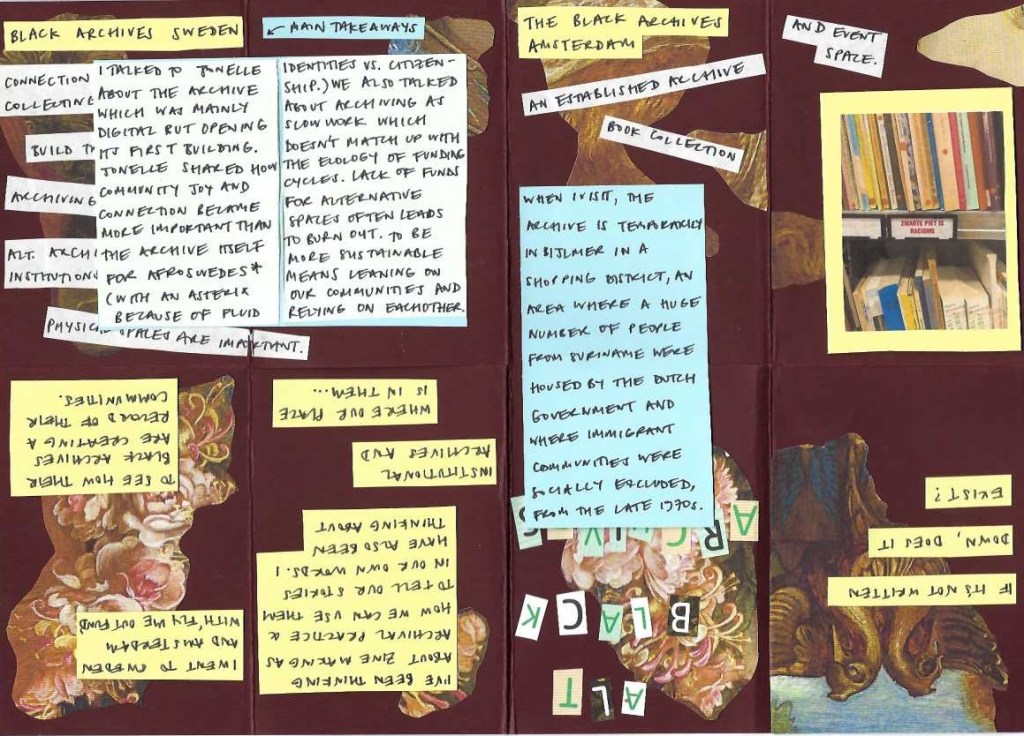 BLACK ARCHIVES SWEDEN
← MAIN TAKEAWAYS
CONNECTION
COLLECTING
BUILD
ARCHIVING
ALT.
PHYSICAL SPACES ARE IMPORTANT.
I TALKED TO JONELLE
ABOUT THE ARCHIVE
WHICH WAS MAINLY
DIGITAL BUT OPENING
ITS FIRST BUILDING.
JONELLE SHARED HOW
COMMUNITY JOY AND
CONNECTION BECAME
MORE IMPORTANT THAN
THE ARCHIVE ITSELF
FOR AFROSWEDES*
(WITH AN ASTERIX
BECAUSE OF FLUID
IDENTITIES VS. CITIZEN-
SHIP.) WE ALSO TALKED
ABOUT ARCHIVING AS
SLOW WORK WHICH
DOESN'T MATCH UP WITH
THE ECOLOGY OF FUNDING
CYCLES. LACK OF FUNDS
FOR ALTERNATIVE
SPACES OFTEN LEADS
TO BURN OUT. TO BE
MORE SUSTAINABLE
MEANS LEANING ON
OUR COMMUNITIES AND
RELYING ON EACHOTHER.
THE BLACK ARCHIVES
AMSTERDAM
AN ESTABLISHED ARCHIVE
BOOK COLLECTION
AND EVENT
SPACE.
ZWARTE PIET IS
RACISME
WHEN I VISIT, THE
ARCHIVE IS TEMPORARILY
IN BIJLMER IN A
SHOPPING DISTRICT, AN
AREA WHERE A HUGE
NUMBER OF PEOPLE
FROM SURINAME WERE
HOUSED BY THE DUTCH
GOVERNMENT AND
WHERE IMMIGRANT
COMMUNITIES WERE
SOCIALLY EXCLUDED,
FROM THE LATE 1970s.
ALT
BLACK
ARCHIVES
I'VE BEEN THINKING
ABOUT ZINE MAKING AS
ARCHIVAL PRACTICE &
HOW WE CAN USE THEM
TO TELL OUR STORIES
IN OUR OWN WORDS. I
HAVE ALSO BEEN
THINKING ABOUT
INSTITUTIONAL
ARCHIVES AND
WHERE OUR PLACE
IS IN THEM...
I WENT TO SWEDEN
AND AMSTERDAM
WITH, FLY ME OUT FUND,
TO SEE HOW THEIR
BLACK ARCHIVES
ARE CREATING A
RECORD OF THEIR
COMMUNITIES.
IF IT'S NOT WRITTEN
DOWN, DOES IT
EXIST?